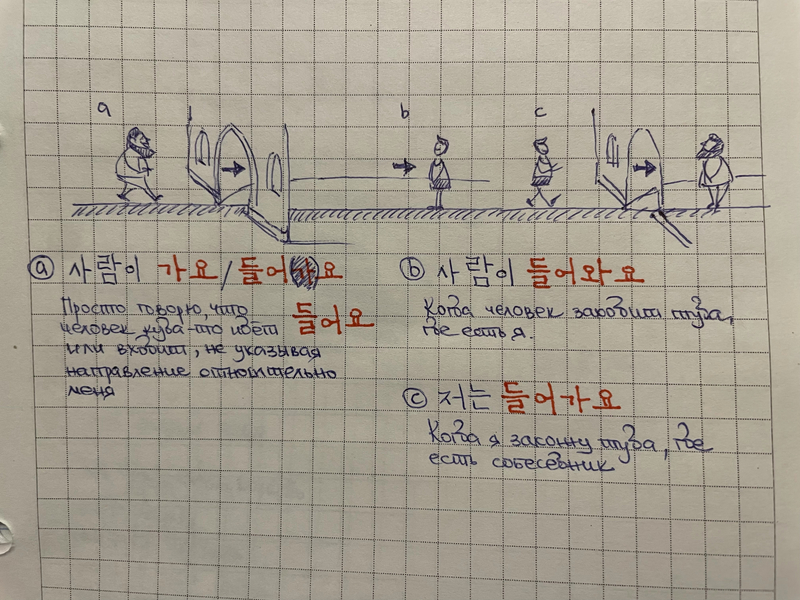 a
b
c
ⓐ 사람이 가요/들어가요
들어요
Просто говорю, что
человек куда-то идёт
или входит, не указывая
направление относительно
меня
ⓑ 사람이 들어와요
Когда человек заходит туда,
где есть я.
ⓒ 저는 들어가요
Когда я захожу туда, где
есть собеседник